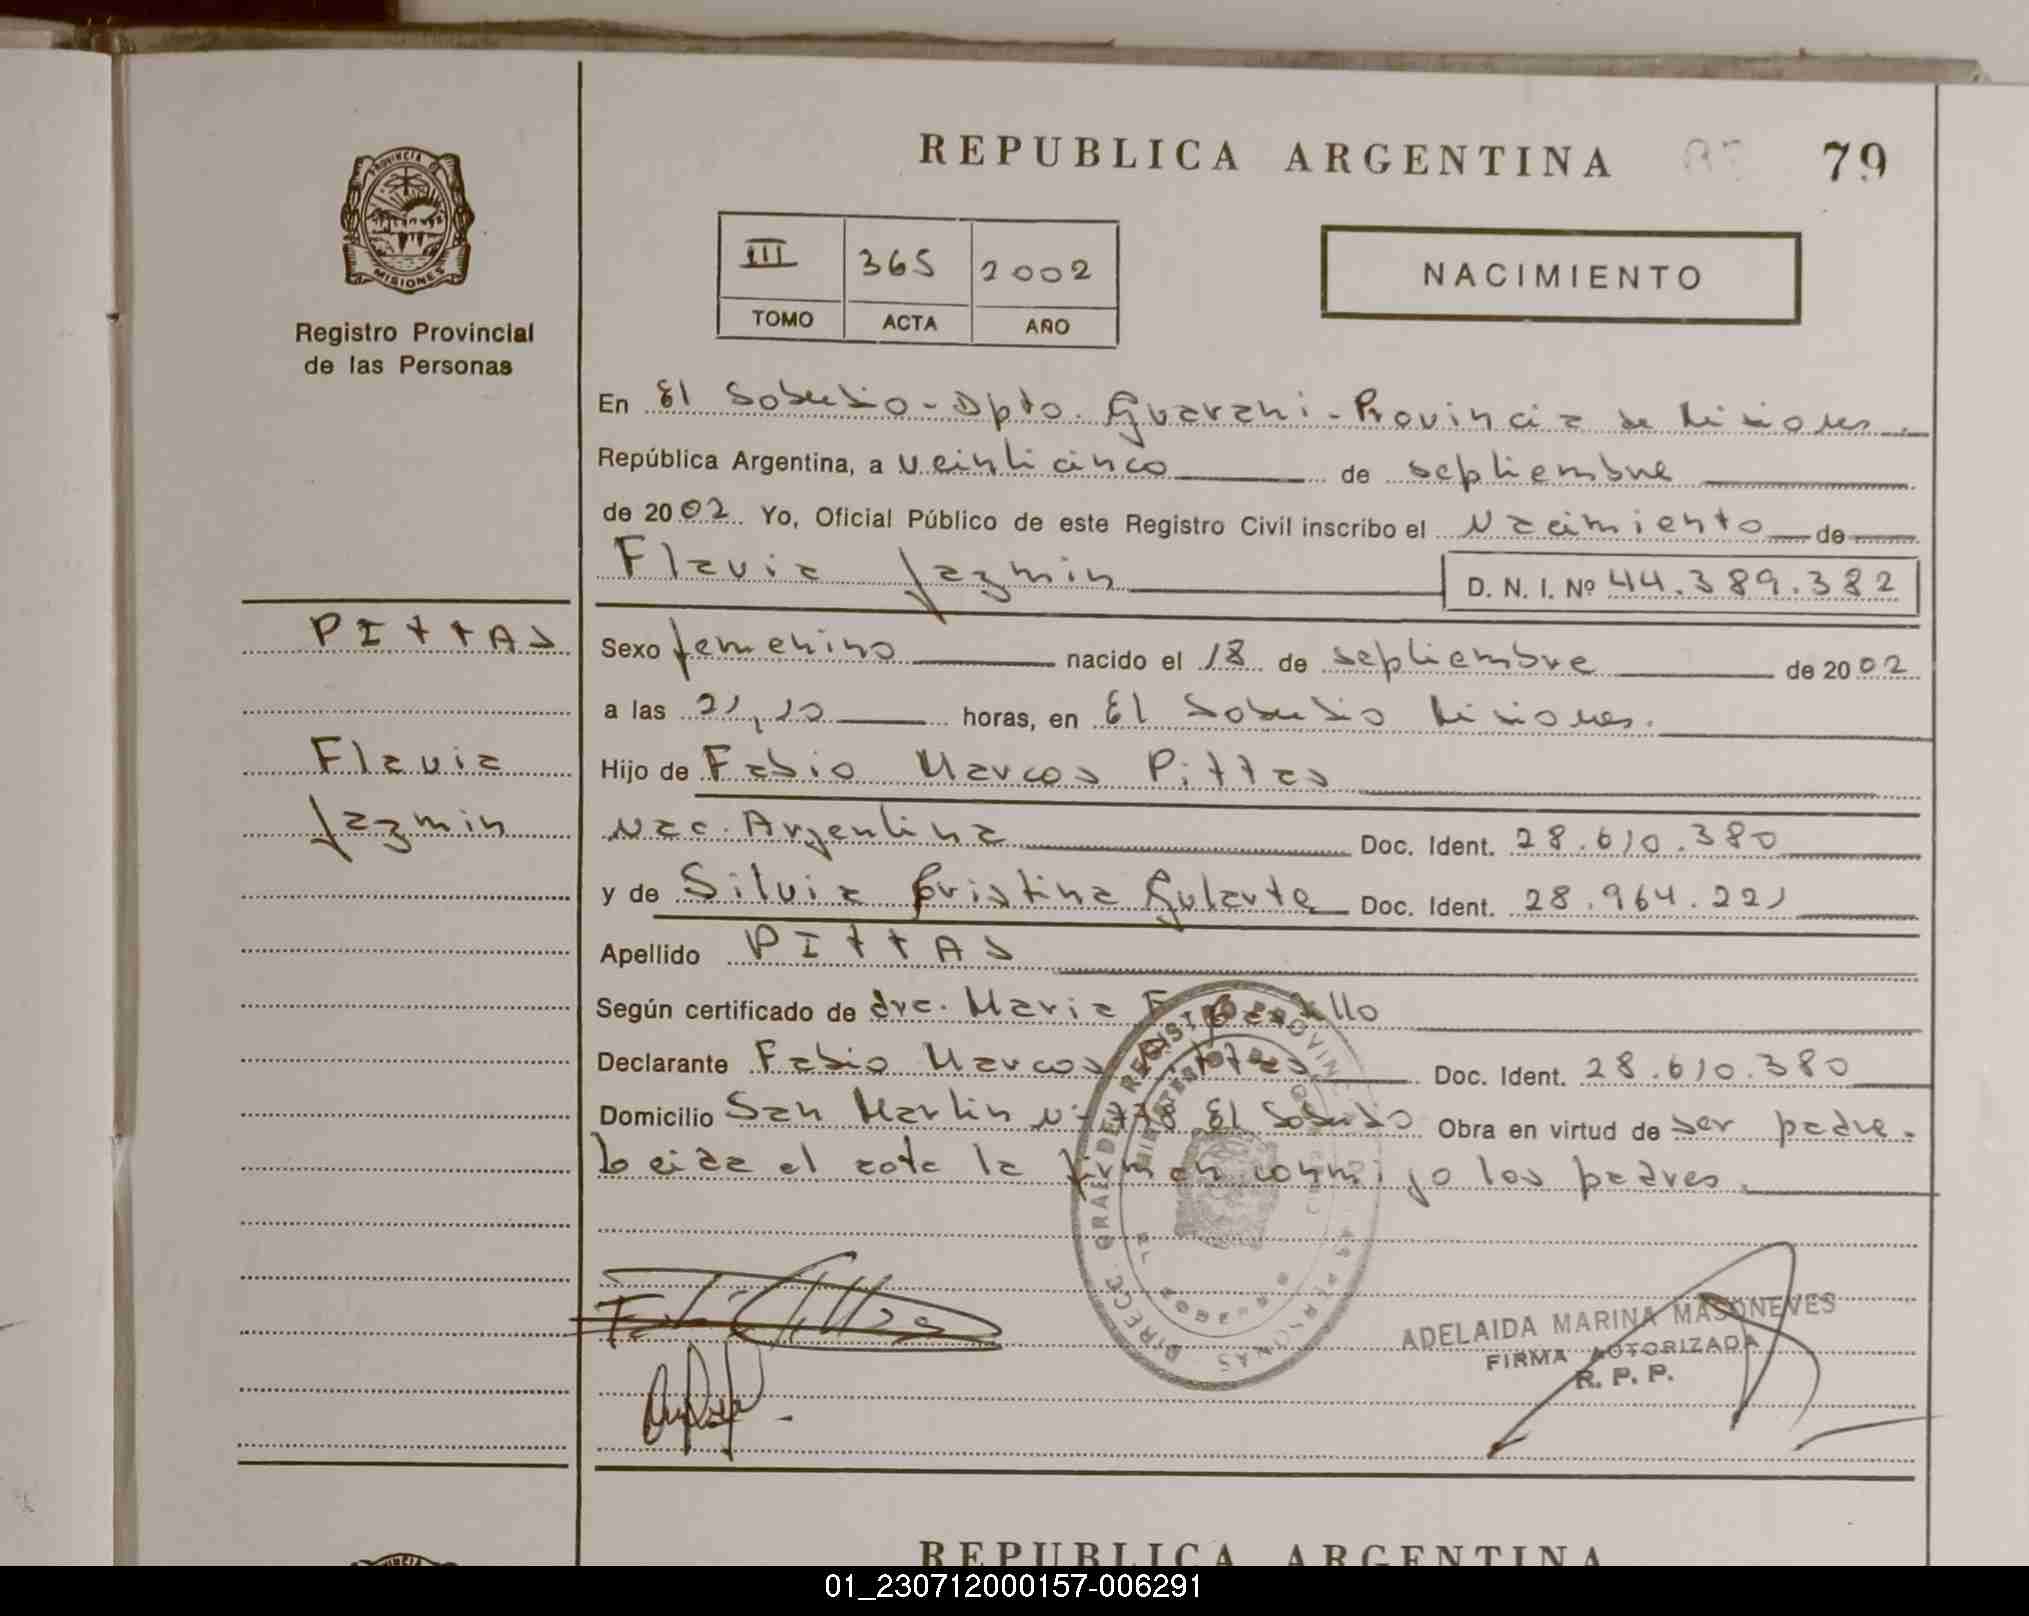 REPUBLICA ARGENTINA 79
PROVINCIA DE
MISIONES
Registro Provincial
de las Personas
III 365 2002
TOMO ACTA AÑO
NACIMIENTO
En El Soberbio - Dpto. Guarani - Provincia de Misiones.
República Argentina, a veinticinco de septiembre
de 2002. Yo, Oficial Público de este Registro Civil inscribo el Nacimiento de
Flavia Jazmin D. N. I. Nº 44.389.382
PITTAS
Flavia
Jazmin
Sexo femenino nacido el 18 de septiembre de 2002
a las 21,10 horas, en El Soberbio Misiones.
Hijo de Fabio Marcos Pittas
Nac. Argentina Doc. Ident. 28.610.380
y de Silvia Cristina Gularte Doc. Ident. 28.964.221
Apellido PITTAS
Según certificado de dra. Maria
Declarante Fabio Marcos Pittas Doc. Ident. 28.610.380
Domicilio San Martin El Soberbio Obra en virtud de ser padre.
Leida el acta la firman conmigo los padres.
ADELAIDA MARINA MASONEVES
FIRMA AUTORIZADA
R. P. P.
REPUBLICA ARGENTINA
01_230712000157-006291